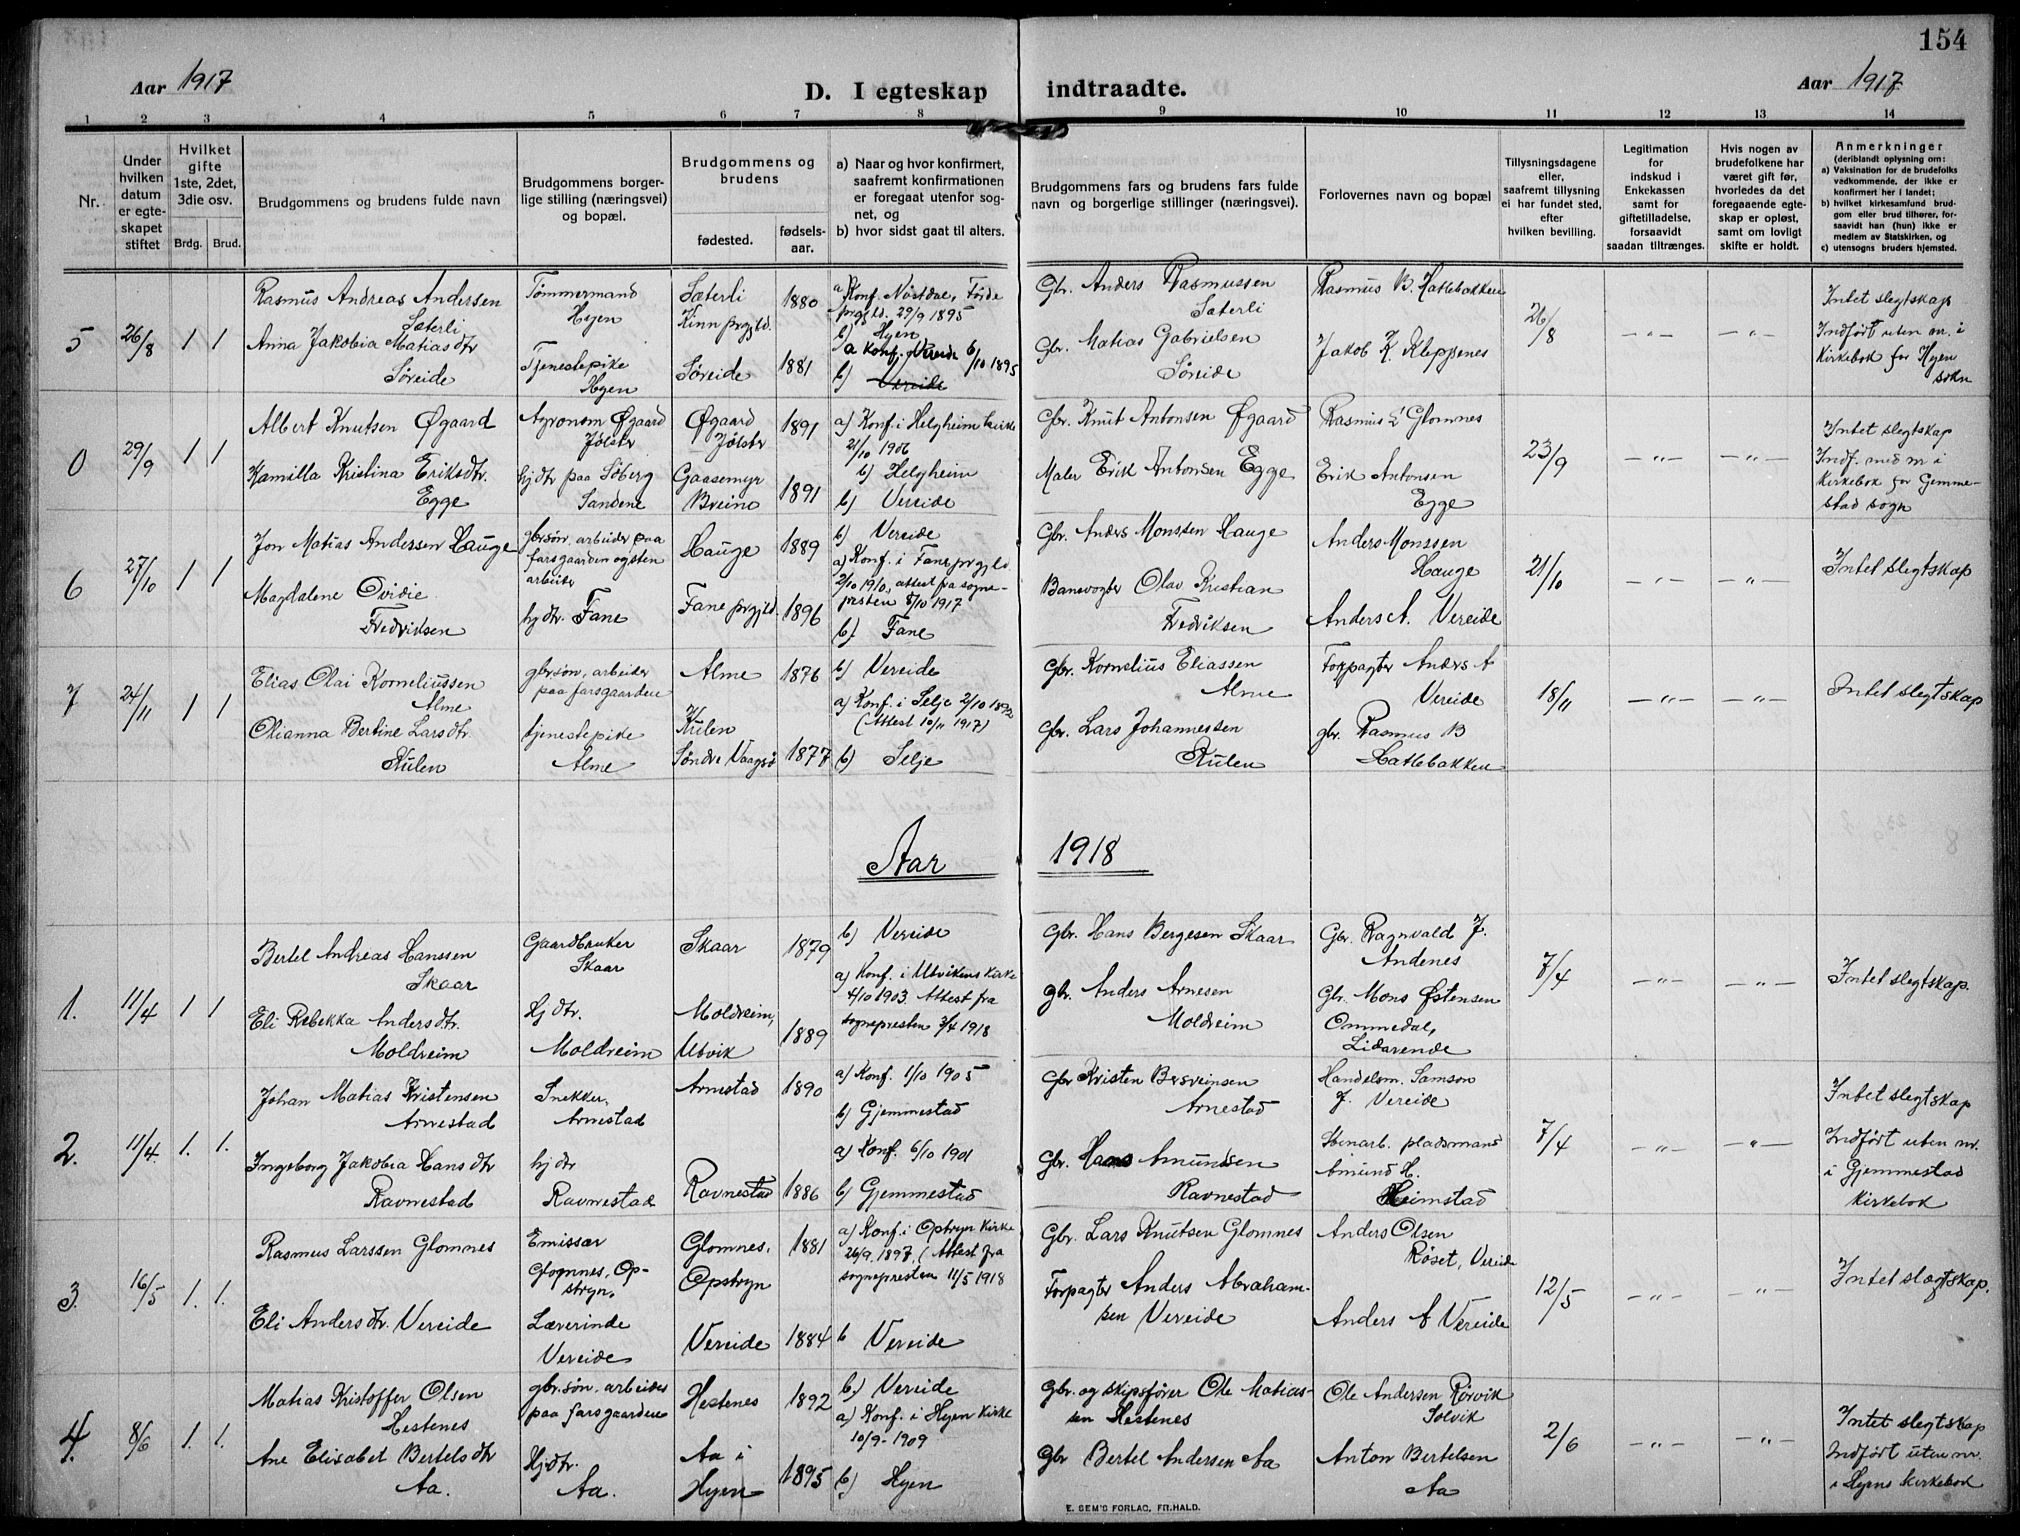 154
Aar 1917
D. I egteskap indtraadte.
Aar 1917
1 2 3 4 5 6 7 8 9 10 11 12 13 14
Nr.
Under
hvilken
datum
er egte-
skapet
stiftet
Hvilket
gifte
1ste, 2det,
3die osv.
Brdg. Brud.
Brudgommens og brudens fulde navn
Brudgommens borger-
lige stilling (næringsvei)
og bopæl.
Brudgommens og
brudens
fødested.
fødsels-
aar.
a) Naar og hvor konfirmert,
saafremt konfirmationen
er foregaat utenfor sog-
net, og
b) hvor sidst gaat til alters.
Brudgommens fars og brudens fars fulde
navn og borgerlige stillinger (næringsvei).
Forlovernes navn og bopæl
Tillysningsdagene
eller,
saafremt tillysning
ei har fundet sted,
efter
hvilken bevilling.
Legitimation
for
indskud i
Enkekassen
samt for
giftetilladelse,
forsaavidt
saadan tiltrænges.
Hvis nogen av
brudefolkene har
været gift før,
hvorledes da det
foregaaende egte-
skap er opløst,
samt om lovligt
skifte er holdt.
Anmerkninger
(deriblandt oplysning om:
a) Vaksination for de brudefolks
vadkommende, der ikke er
konfirmert her i landet;
b) hvilket kirkesamfund brud-
gom eller brud tilhører, for-
saavidt han (hun) ikke er
medlem av Statskirken, og
c) utensogns bruders hjemsted.
5 26/8 1 1
Rasmus Andreas Andersen
Sæterli
Anna Jakobia Matiasdtr
Søreide
Tømmermand
Hyen
Tjenestepike
Hyen
Sæterli
Kinn prgjld.
Søreide
1880
1881
a Konf. Nøstdal, Førde
prgjld. 29/9 1895
b) Hyen
a Konf. Vereide 6/10 1895
b) Vereide
Gbr. Anders Rasmussen
Sæterli
Gbr. Matias Gabrielsen
Søreide
Rasmus B. Hatlebakken
Jakob K. Kleppenes
26/8
-"-
-"-
Intet slegtskap
Indført uten nr. i
Kirkebok for Hyen
sokn
0 29/9 1 1
Albert Knutsen Øgaard
Kamilla Kristina Eriksdtr.
Egge
Agronom Øgaard
Jølster
hjdtr paa Søberg
Sandene
Øgaard
Jølster
Gaasemyr
Breim
1891
1891
a) Konf. i Helgheim kirke
21/10 1906
b) Helgheim
b) Vereide
Gbr. Knut Antonsen Øgaard
Maler Erik Antonsen Egge
Rasmus L Glomnes
Erik Antonsen
Egge
23/9
-"-
-"-
Intet slegtskap
Indf. med nr i
Kirkebok for Gjemme-
stad sogn
6 27/10 1 1
Jon Matias Anderssen Hauge
Magdalene Ovidie
Fredriksen
gbrsøn, arbeider paa
farsgaarden og sten
arbeider
hjdtr. Fane
Hauge
Fane prgjld.
1889
1896
b) Vereide
a) Konf. i Fane prgjld.
2/10 1910, attest fra sogne-
presten 8/10 1917
b) Fane
Gbr. Anders Monssen Hauge
Banevogter Olav Kristian
Fredriksen
Anders Monssen
Hauge
Anders A. Vereide
21/10
-"-
-"-
Intet slegtskap
7 24/11 1 1
Elias Olai Korneliussen
Alme
Olianna Bertine Larsdtr.
Kulen
gbrsøn, arbeider
paa farsgaarden
tjenestepike
Alme
Alme
Kulen
Søndre Vaagsø
1876
1877
b) Vereide
a) Konf. i Selje 2/10 1892
(Attest 10/11 1917)
b) Selje
Gbr. Kornelius Eliassen
Alme
Gbr. Lars Johannessen
Kulen
Forpagter Anders A
Vereide
gbr. Rasmus B
Hatlebakken
18/11
-"-
-"-
Intet slegtskap
Aar 1918
1. 11/4 1 1
Bertel Andreas Hanssen
Skaar
Eli Rebekka Andersdtr.
Moldreim
Gaardbruker
Skaar
Hjdtr.
Moldreim
Skaar
Moldreim,
Utvik
1879
1889
b) Vereide
a) Konf. i Utvikens kirke
4/10 1903. Attest fra
sognepresten 3/4 1918
Gbr. Hans Bergesen Skaar
gbr. Anders Arnesen
Moldreim
Gbr. Ragnvald J.
Andenes
Gbr. Mons Østensen
Ommedal,
Lidarende
7/4
-"-
-"-
Intet slegtskap.
2. 11/4. 1. 1.
Johan Matias Kristensen
Arnestad
Ingeborg Jakobia Hansdtr
Ravnestad
Snekker,
Arnestad
hjdtr
Ravnestad
Arnestad
Ravnestad
1890
1886
a) Konf. 1/10 1905
b) Gjemmestad
a) Konf. 6/10 1901
b) Gjemmestad
Gbr Kristen Bersveinsen
Arnestad
Gbr. Hans Amundsen
Ravnestad
Handelsm. Samson
J. Vereide
Stenarb. pladsmand
Amund H.
Heimstad
7/4
-"-
-"-
Intet slegtskap
Indført uten nr.
i Gjemmestad
kirkebok
3. 16/5 1. 1.
Rasmus Larssen Glomnes
Eli Andersdtr. Vereide
Emissær
Glomnes, Op-
stryn.
Lærerinde
Vereide
Glomnes,
Opstryn
Vereide
1881
1884
a) Konf. i Opstryn Kirke
26/9 1897. (Attest fra
sognepresten 11/5 1918
b Vereide
Gbr. Lars Knutsen Glomnes
Forpagter Anders Abraham-
sen Vereide
Anders Olsen
Røset, Vereide
Anders A Vereide
12/5
-"-
-"-
Intet slægtskap.
4. 8/6 1. 1.
Matias Kristoffer Olsen
Hestenes
Ane Elisabet Bertelsdtr
Aa.
gbr.søn, arbeider
paa farsgaarden
Hjdtr.
Aa.
Hestenes
Aa i
Hyen
1892
1895
b.) Vereide
a) Konf. i Hyen Kirke
10/9 - 1909
b) Hyen
gbr. og skipsfører Ole Matias-
sen Hestenes
Gbr Bertel Andersen Aa
Ole Andersen Rørvik
Solvik
Anton Bertelsen
Aa
2/6
-"-
-"-
Intet slegtskap
Indført uten nr.
i Hyens kirkebok
E. SEM'S FORLAG, FR.HALD.